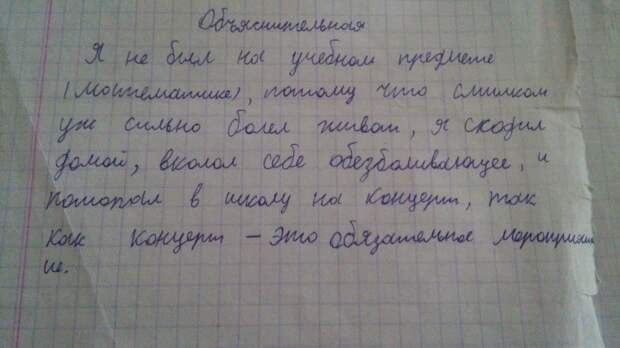 Объяснительная
Я не был на учебном предмете
(математике), потому что слишком
уж сильно болел живот, я сходил
домой, вколол себе обезболивающее, и
потопал в школу на концерт, так
как концерт — это обязательное мероприяти
ие.